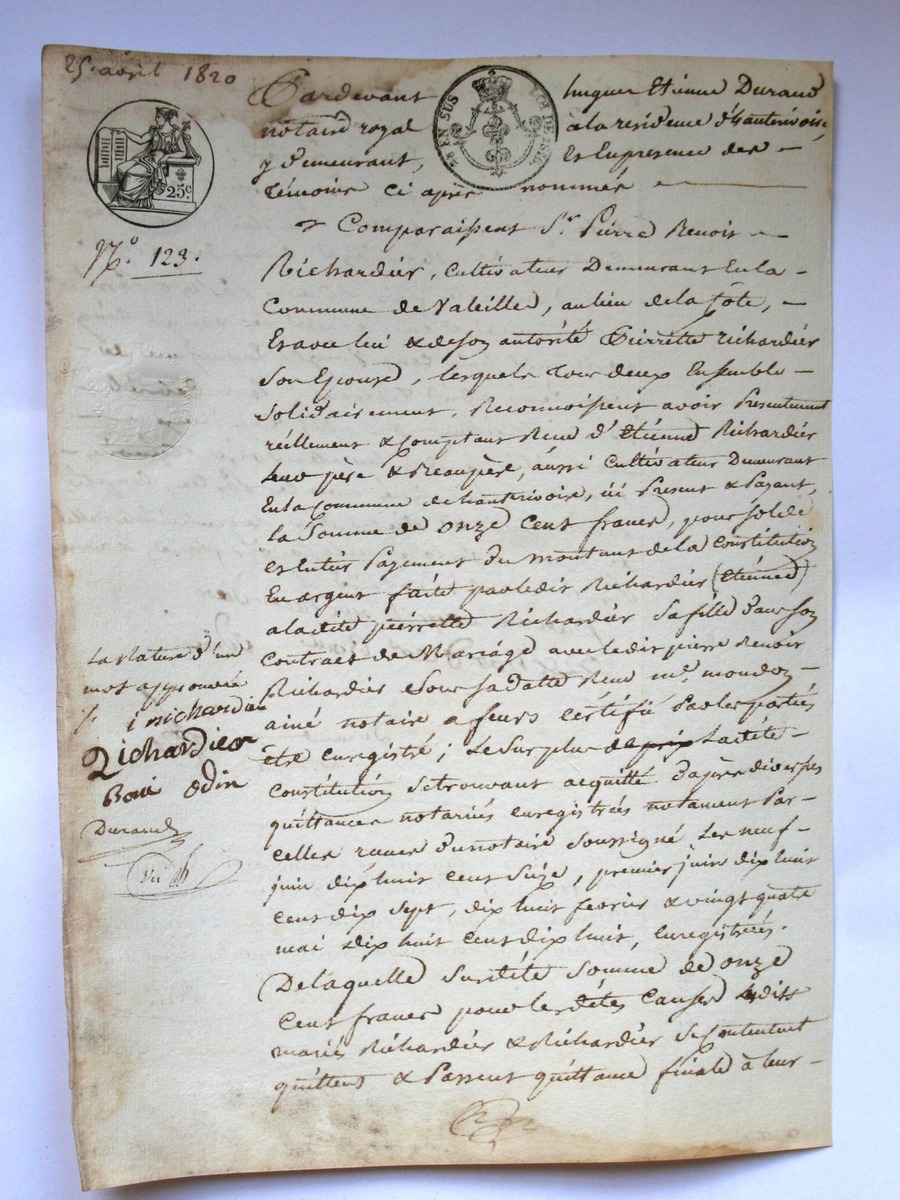 25. avril 1820
Pardevant hugues Etienne Durand
notaire royal à la residence d'hauterivoire,
y demeurant, Et En presence des
témoins ci après nommés
Comparaissent Sr. Pierre Benoit
Richardier, cultivateur Demeurant En la
Commune de Valeille, au lieu de la Côte,
Et avec lui & de son autorité Pierrette richardier
Son Epouse, lesquels tous deux Ensemble
Solidairement, Reconnoissent avoir Presentement
réellement & comptant Reçu d'Etienne Richardier
leur père & Beaupère, aussi cultivateur Demeurant
En la Commune de hauterivoire, ici Present & Payant,
la Somme de onze cent francs, pour solde
et Entier Payement du montant de la Constitution
En argent faite par ledit Richardier (Etienne)
a ladite pierrette Richardier Sa fille dans son
contract de Mariage avec ledit pierre Benoit
Richardier Sous sa datte Reçu me. mondon
ainé notaire a feurs certifié Par les parties
être enregistré; Le Surplus de prix Ladite
Constitution se trouvant acquitté d'après diverses
quittances notariés enregistrées notament Par
celles reçues du notaire soussigné Les neuf
juin dix huit cent Seize, premier juin dix huit
cent dix sept, dix huit fevrier & vingt quatre
mai dix huit cent dix huit, enregistrées.
De laquelle Susdite somme de onze
cent francs pour les dites causes Lesdits
mariés Richardier & Richardier se contentent
quittent & Passent quittance finale à leur
EN SUS
25c.
No. 123.
La Rature d'un
mot approuvée
richardier
Richardier
Boni Odin
Durand